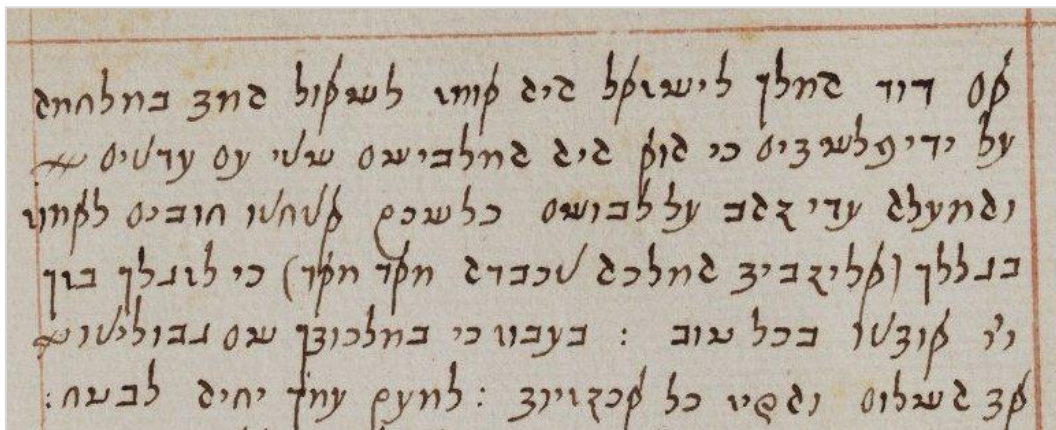 אם דוד המלך לישראל היה אומר לשאול המת במלחמה
על ידי פלשתים כי הוא היה המלבישם שני עם עדנים
והמעלה עדי זהב על לבושם כל שכן אנחנו חובים לאמור
בגללך (אליזבית המלכה נכבדה מאד מאד) כי לרגלך ברך
יי אותנו בכל טוב : בעבור כי במלכותך שם גבולינו
את השלום והסיר כל אכזריות : למען עמך יחיה לבטח: